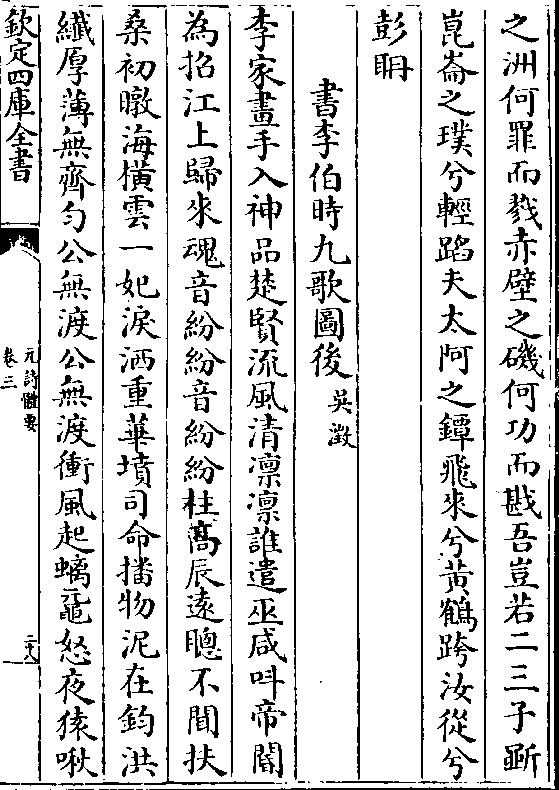 之洲何罪而戮赤壁之磯何功而戡吾豈若二三子斲
崑崙之璞兮輕蹈夫太阿之鐔飛來兮黄鶴跨汝從兮
彭聃
書李伯時九歌圖後 吳澂
李家畫手入神品楚賢流風清凛凛誰遣巫咸叫帝閽
為招江上歸來魂音紛紛音紛紛柱髙辰逺聰不聞扶
桑初暾海横雲一妃淚洒重華墳司命播物泥在鈞洪
纖厚薄無齊勻公無渡公無渡衝風起螭黿怒夜猿啾
欽定四庫全書
元詩體要
卷三
二八